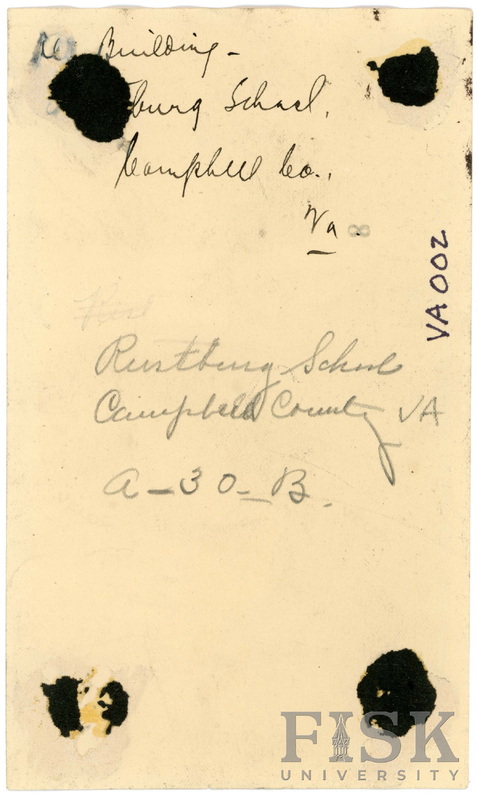 Building -
burg School,
Campbell Co.,
Va.
8
VA 002
Rustburg School
Campbell County VA
A-30-B.
FISK
UNIVERSITY